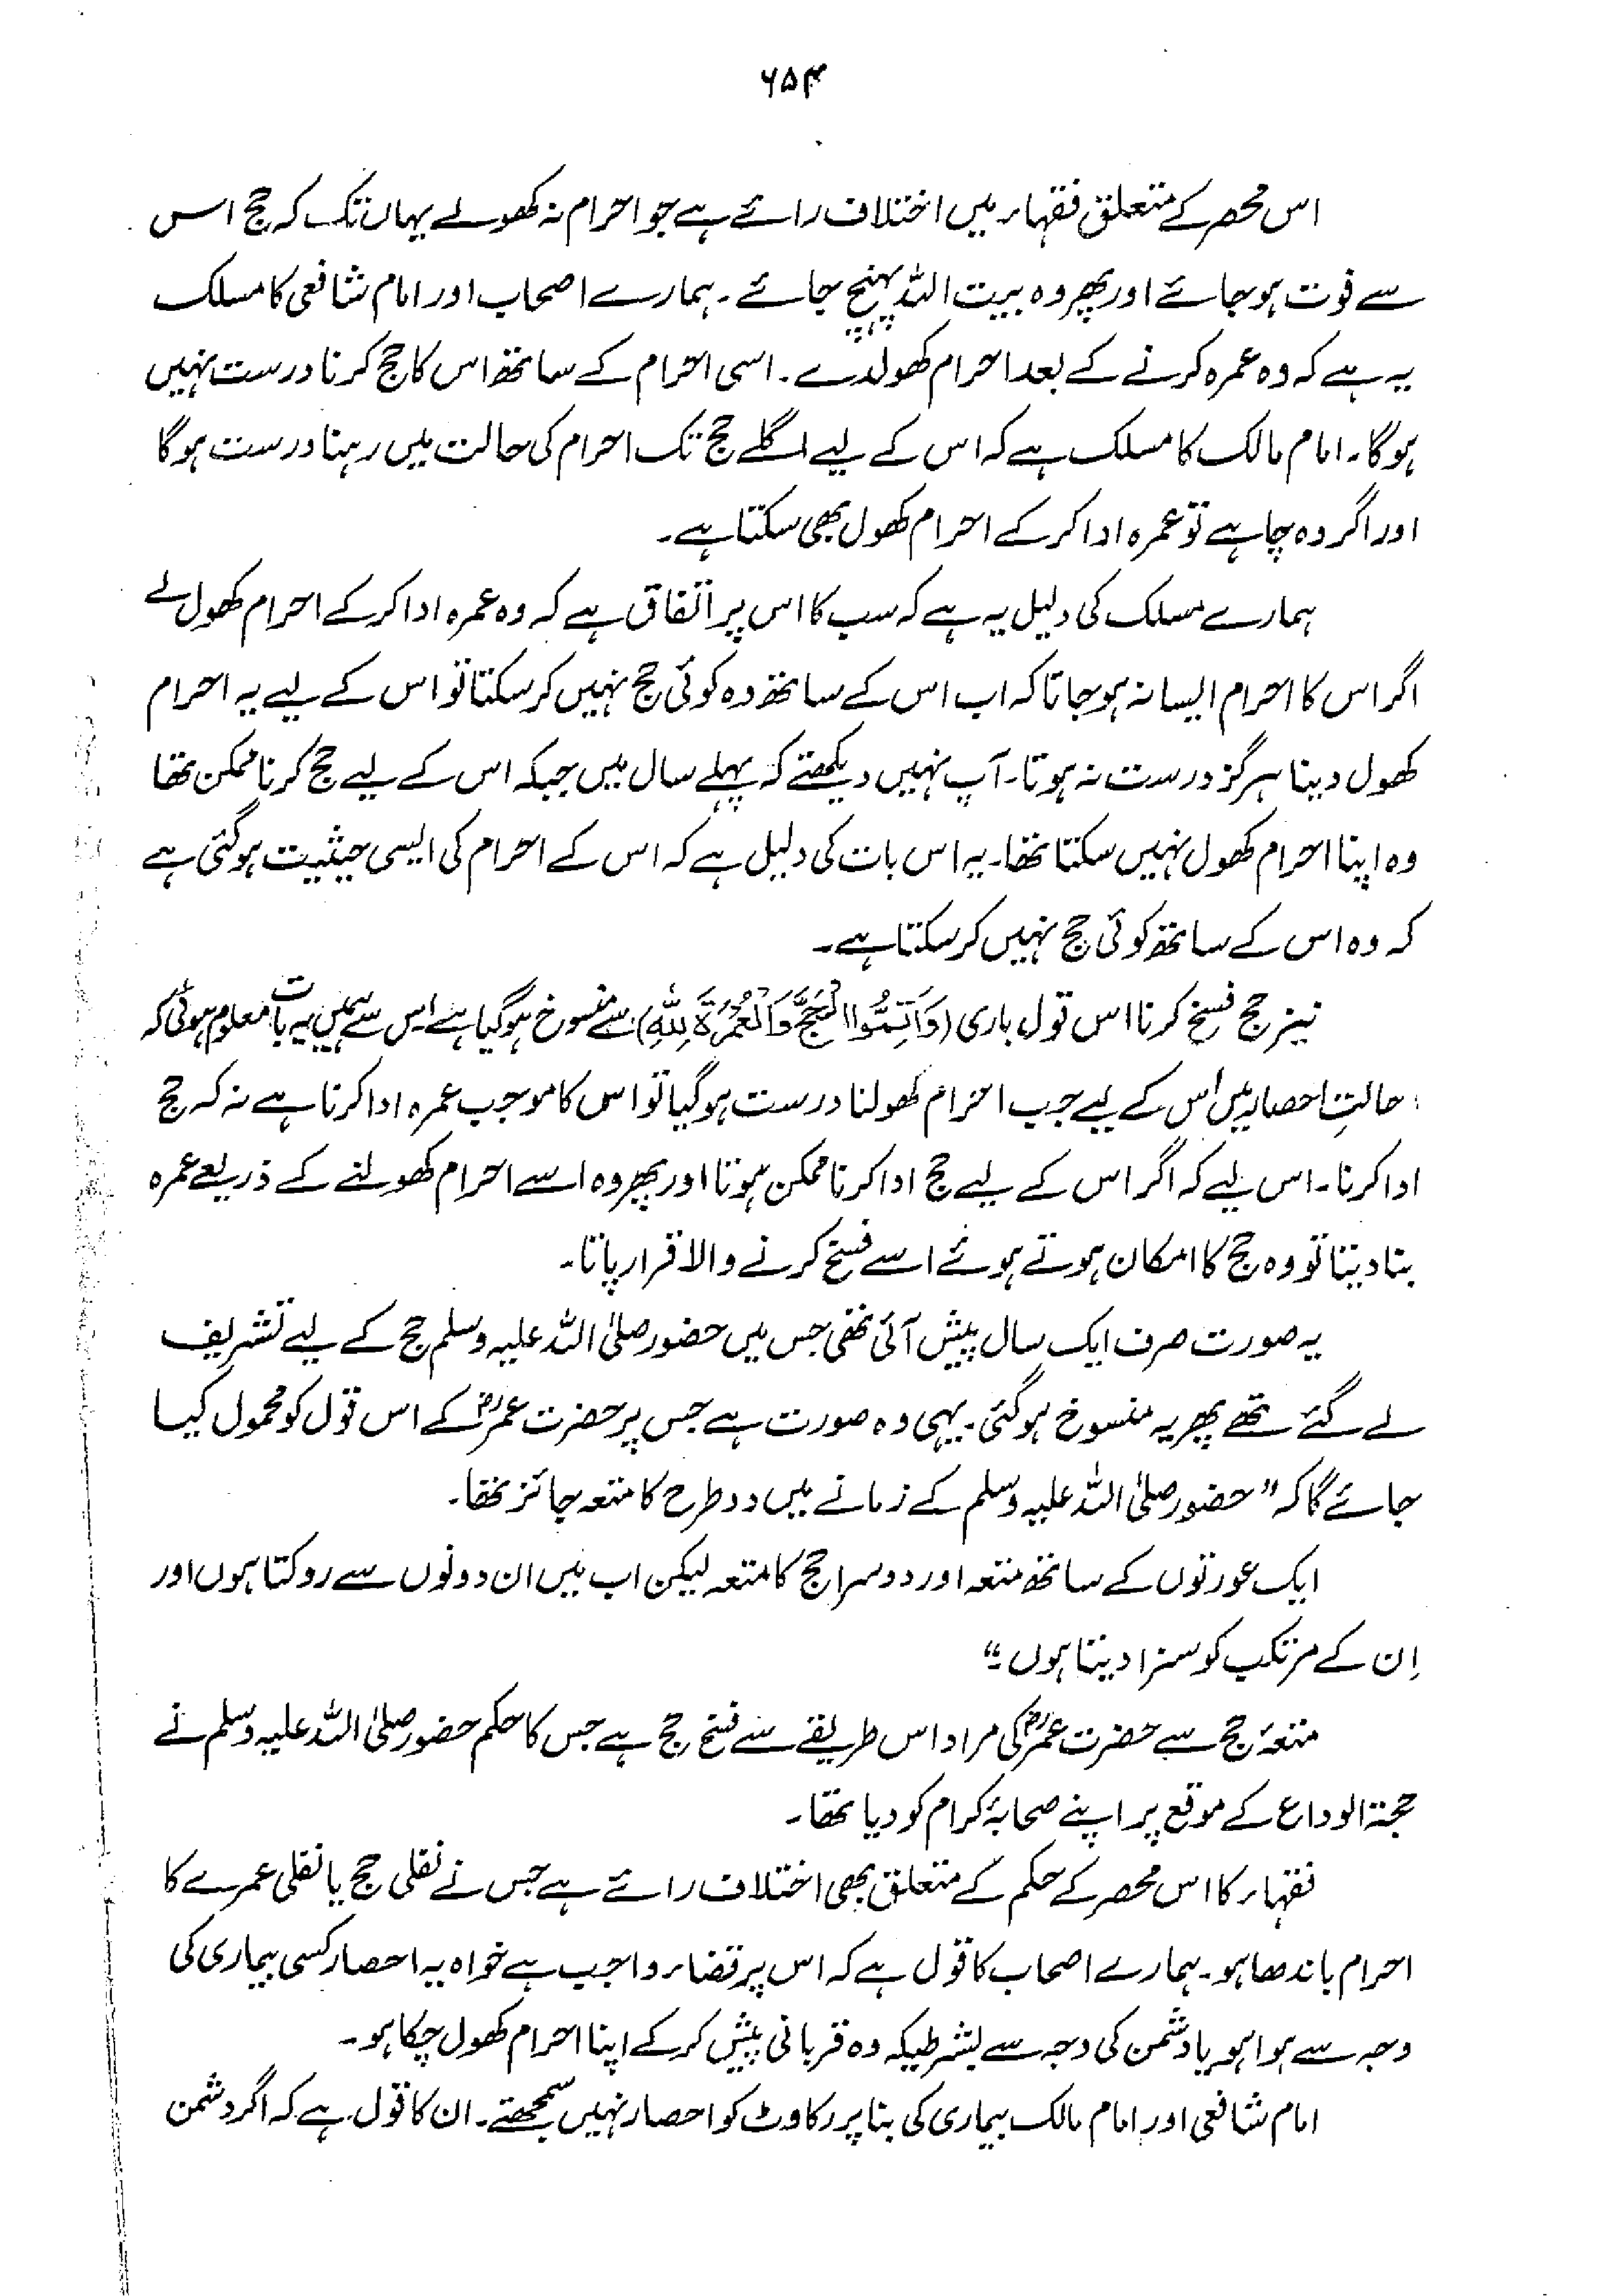 ۶۵۴
اس محصر کے متعلق فقہاء میں اختلاف رائے ہے جو احرام نہ کھولے یہاں تک کہ حج اس
سے فوت ہو جائے اور پھر وہ بیت اللہ پہنچ جائے۔ ہمارے اصحاب اور امام شافعی کا مسلک
یہ ہے کہ وہ عمرہ کرنے کے بعد احرام کھولدے۔ اسی احرام کے ساتھ اس کا حج کرنا درست نہیں
ہوگا۔ امام مالک کا مسلک ہے کہ اس کے لیے اگلے حج تک احرام کی حالت میں رہنا درست ہوگا
اور اگر وہ چاہے تو عمرہ ادا کر کے احرام کھول بھی سکتا ہے۔
ہمارے مسلک کی دلیل یہ ہے کہ سب کا اس پر اتفاق ہے کہ وہ عمرہ ادا کر کے احرام کھول لے
اگر اس کا احرام ایسا نہ ہو جاتا کہ اب اس کے ساتھ وہ کوئی حج نہیں کر سکتا تو اس کے لیے یہ احرام
کھول دینا ہرگز درست نہ ہوتا۔ آپ نہیں دیکھتے کہ پہلے سال میں جبکہ اس کے لیے حج کرنا ممکن تھا
وہ اپنا احرام کھول نہیں سکتا تھا۔ یہ اس بات کی دلیل ہے کہ اس کے احرام کی ایسی حیثیت ہو گئی ہے
کہ وہ اس کے ساتھ کوئی حج نہیں کر سکتا ہے۔
نیز حج فسخ کرنا اس قول باری (وَاَتِمُّوا الْحَجَّ وَالْعُمْرَةَ لِلّٰهِ) سے منسوخ ہو گیا ہے اس سے ہمیں یہ بات معلوم ہوئی کہ
حالتِ احصار میں اس کے لیے جب احرام کھولنا درست ہو گیا تو اس کا موجب عمرہ ادا کرنا ہے نہ کہ حج
ادا کرنا۔ اس لیے کہ اگر اس کے لیے حج ادا کرنا ممکن ہوتا اور پھر وہ اسے احرام کھولنے کے ذریعے عمرہ
بنا دیتا تو وہ حج کا امکان ہوتے ہوئے اسے فسخ کرنے والا قرار پاتا۔
یہ صورت صرف ایک سال پیش آئی تھی جس میں حضور صلی اللہ علیہ وسلم حج کے لیے تشریف
لے گئے تھے پھر یہ منسوخ ہو گئی۔ یہی وہ صورت ہے جس پر حضرت عمرؓ کے اس قول کو محمول کیا
جائے گا کہ "حضور صلی اللہ علیہ وسلم کے زمانے میں دو طرح کا متعہ جائز تھا۔
ایک عورتوں کے ساتھ متعہ اور دوسرا حج کا متعہ لیکن اب میں ان دونوں سے روکتا ہوں اور
اِن کے مرتکب کو سزا دیتا ہوں۔"
متعۂ حج سے حضرت عمرؓ کی مراد اس طریقے سے فسخ حج ہے جس کا حکم حضور صلی اللہ علیہ وسلم نے
حجۃ الوداع کے موقع پر اپنے صحابۂ کرام کو دیا تھا۔
فقہاء کا اس محصر کے حکم کے متعلق بھی اختلاف رائے ہے جس نے نفلی حج یا نفلی عمرے کا
احرام باندھا ہو۔ ہمارے اصحاب کا قول ہے کہ اس پر قضاء واجب ہے خواہ یہ احصار کسی بیماری کی
وجہ سے ہوا ہو یا دشمن کی وجہ سے بشرطیکہ وہ قربانی پیش کر کے اپنا احرام کھول چکا ہو۔
امام شافعی اور امام مالک بیماری کی بنا پر رکاوٹ کو احصار نہیں سمجھتے۔ ان کا قول ہے کہ اگر دشمن